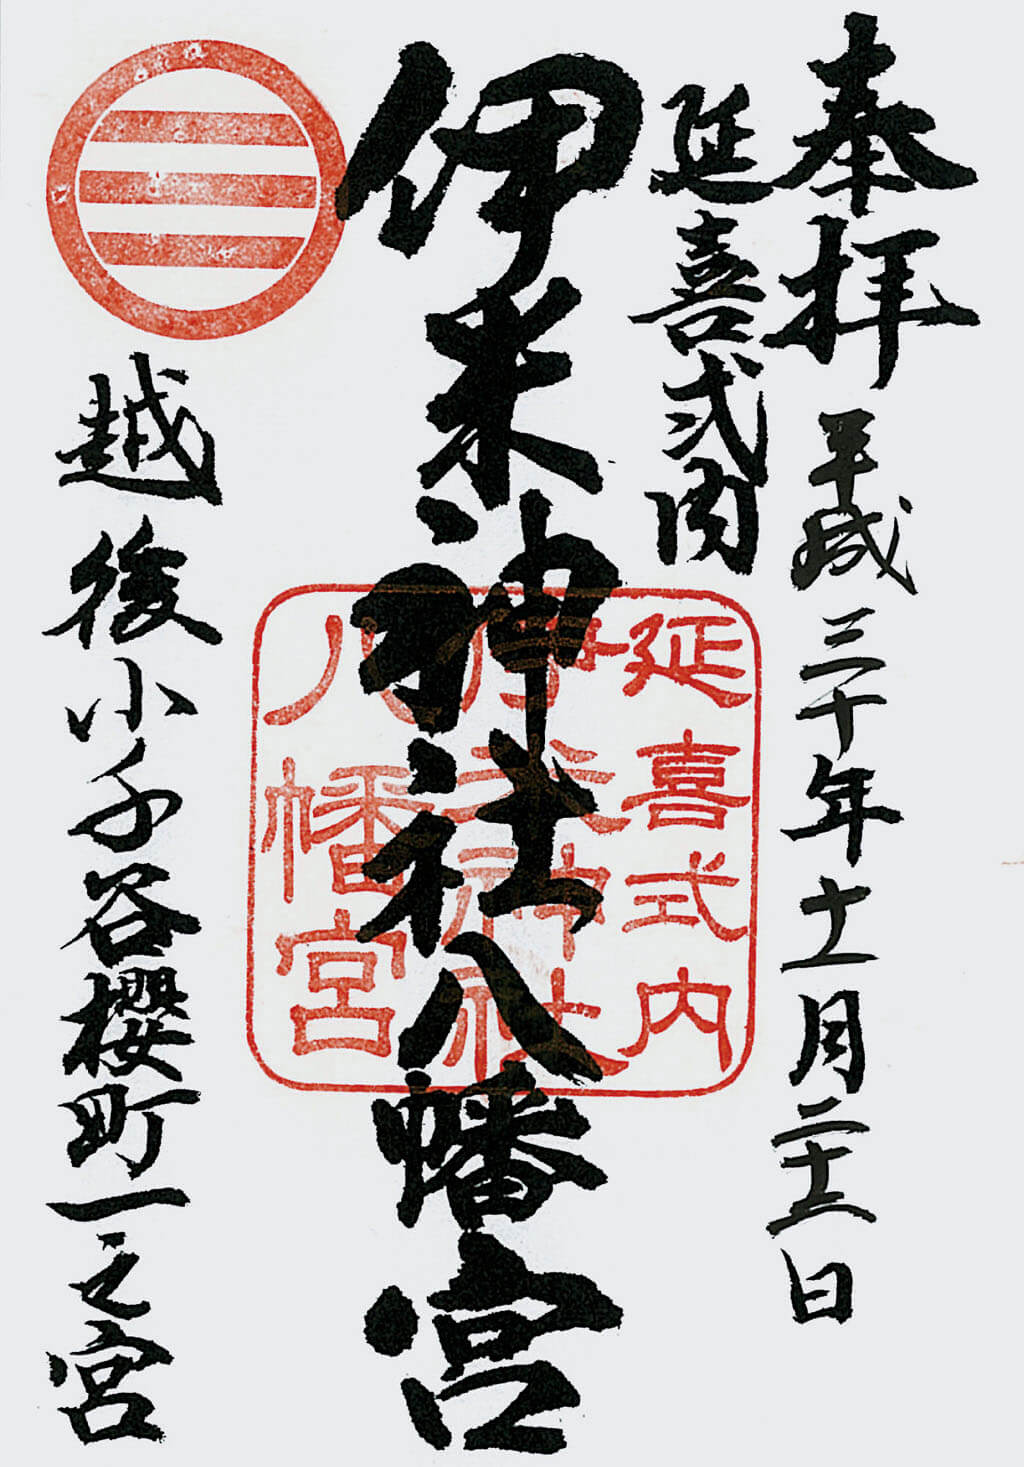 奉拝 平成三十年十一月二十一日
延喜式内
伊米神社八幡宮
越後小千谷櫻町一之宮
延喜式内
伊米神社
八幡宮